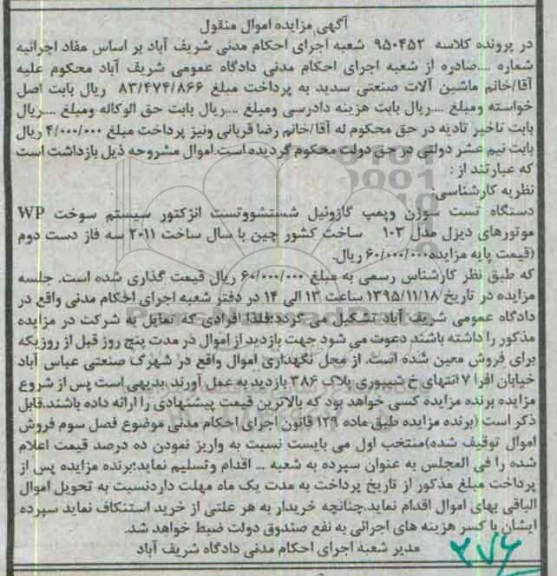 آگهی مزایده اموال منقول
در پرونده کلاسه ۹۵۰۴۵۲ شعبه اجرای احکام مدنی شریف آباد بر اساس مفاد اجرائیه
شماره ....صادره از شعبه اجرای احکام مدنی دادگاه عمومی شریف آباد محکوم علیه
آقا/خانم ماشین آلات صنعتی سدید به پرداخت مبلغ ۸۳/۴۷۴/۸۶۶ ریال بابت اصل
خواسته ومبلغ ....ریال بابت هزینه دادرسی ومبلغ ....ریال بابت حق الوکاله ومبلغ ....ریال
بابت تاخیر تادیه در حق محکوم له آقا/خانم رضا قربانی ونیز پرداخت مبلغ ۴/۰۰۰/۰۰۰ ریال
بابت نیم عشر دولتی در حق دولت محکوم گردیده است.اموال مشروحه ذیل بازداشت است
که عبارتند از :
نظریه کارشناسی
دستگاه تست سوزن وپمپ گازوئیل شستشووتست انژکتور سیستم سوخت WP
موتورهای دیزل مدل ۱۰۳ ساخت کشور چین با سال ساخت ۲۰۱۱ سه فاز دست دوم
(قیمت پایه مزایده۶۰/۰۰۰/۰۰۰ ریال.
که طبق نظر کارشناس رسمی به مبلغ ۶۰/۰۰۰/۰۰۰ ریال قیمت گذاری شده است. جلسه
مزایده در تاریخ ۱۳۹۵/۱۱/۱۸ ساعت ۱۳ الی ۱۴ در دفتر شعبه اجرای احکام مدنی واقع در
دادگاه عمومی شریف آباد تشکیل می گردد؛لذا افرادی که تمایل به شرکت در مزایده
مذکور را داشته باشند دعوت می شود جهت بازدید از اموال در مدت پنج روز قبل از روزیکه
برای فروش معین شده است. از محل نگهداری اموال واقع در شهرک صنعتی عباس آباد
خیابان افرا ۷ انتهای خ شیپوری پلاک ۳۸۶ بازدید به عمل آورند.بدیهی است پس از شروع
مزایده برنده مزایده کسی خواهد بود که بالاترین قیمت پیشنهادی را ارائه داده باشند.قابل
ذکر است (برنده مزایده طبق ماده ۱۲۹ قانون اجرای احکام مدنی موضوع فصل سوم فروش
اموال توقیف شده)منتخب اول می بایست نسبت به واریز نمودن ده درصد قیمت اعلام
شده را فی المجلس به عنوان سپرده به شعبه ... اقدام وتسلیم نماید؛برنده مزایده پس از
پرداخت مبلغ مذکور از تاریخ پرداخت به مدت یک ماه مهلت داردنسبت به تحویل اموال
الباقی بهای اموال اقدام نماید.چنانچه خریدار به هر علتی از خرید استنکاف نماید سپرده
ایشان با کسر هزینه های اجرائی به نفع صندوق دولت ضبط خواهد شد.
مدیر شعبه اجرای احکام مدنی دادگاه شریف آباد
۳۷۶